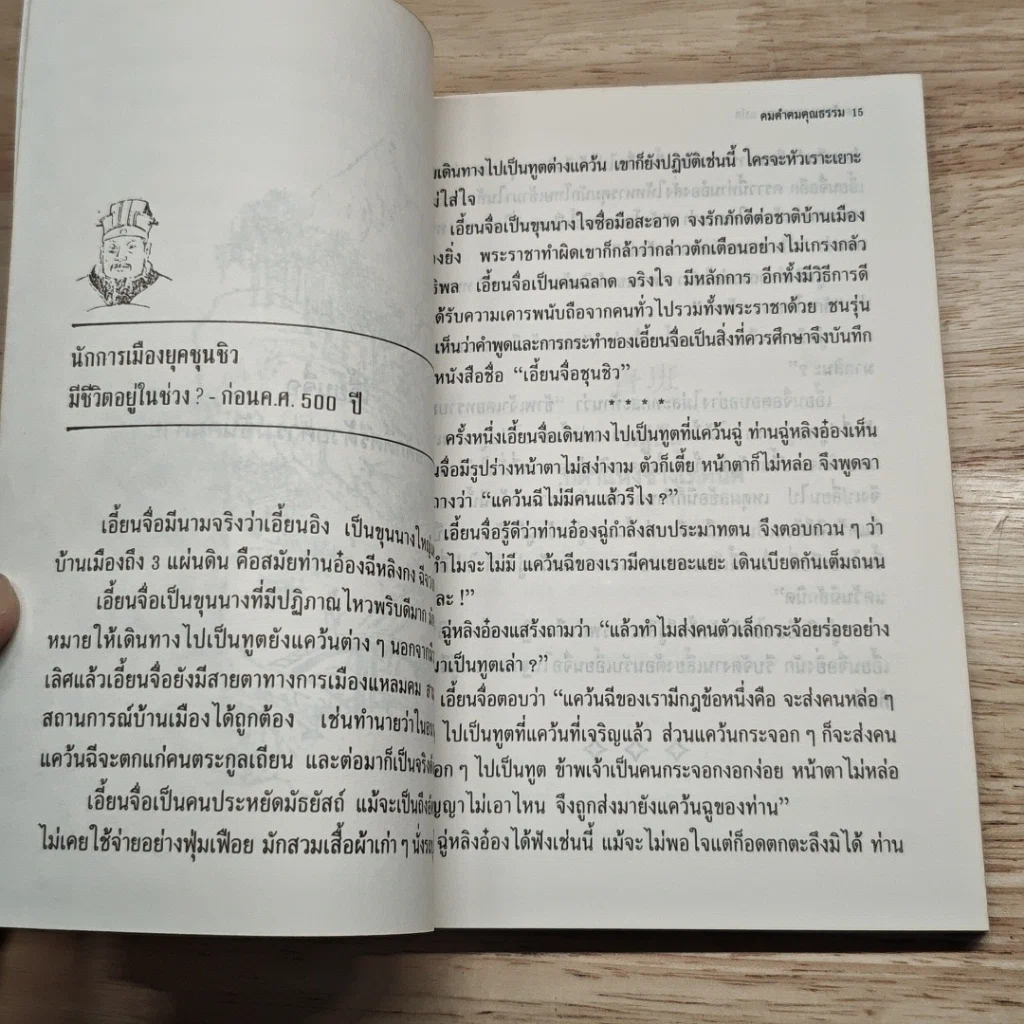 นักการเมืองยุคชุนชิว
มีชีวิตอยู่ในช่วง ? - ก่อนค.ศ. 500 ปี
เอี้ยนจื่อมีนามจริงว่าเอี้ยนอิง เป็นขุนนางใหญ่
บ้านเมืองถึง 3 แผ่นดิน คือสมัยท่านอ๋องฉีหลิงกง
เอี้ยนจื่อเป็นขุนนางที่มีปฏิภาณไหวพริบดีมาก
หมายให้เดินทางไปเป็นทูตยังแคว้นต่าง ๆ นอกจาก
เลิศแล้วเอี้ยนจื่อยังมีสายตาทางการเมืองแหลมคม
สถานการณ์บ้านเมืองได้ถูกต้อง เช่นทำนายว่าใน
แคว้นฉีจะตกแก่คนตระกูลเถียน และต่อมาก็เป็นจริง
เอี้ยนจื่อเป็นคนประหยัดมัธยัสถ์ แม้จะเป็นถึง
ไม่เคยใช้จ่ายอย่างฟุ่มเฟือย มักสวมเสื้อผ้าเก่า ๆ นั่ง
คมคำคมคุณธรรม 15
เดินทางไปเป็นทูตต่างแคว้น เขาก็ยังปฏิบัติเช่นนี้ ใครจะหัวเราะเยาะ
ใส่ใจ
เอี้ยนจื่อเป็นขุนนางใจซื่อมือสะอาด จงรักภักดีต่อชาติบ้านเมือง
ยิ่ง พระราชาทำผิดเขาก็กล้าว่ากล่าวตักเตือนอย่างไม่เกรงกลัว
เอี้ยนจื่อเป็นคนฉลาด จริงใจ มีหลักการ อีกทั้งมีวิธีการดี
ได้รับความเคารพนับถือจากคนทั่วไปรวมทั้งพระราชาด้วย ชนรุ่น
เห็นว่าคำพูดและการกระทำของเอี้ยนจื่อเป็นสิ่งที่ควรศึกษาจึงบันทึก
หนังสือชื่อ “เอี้ยนจื่อชุนชิว”
* * * *
ครั้งหนึ่งเอี้ยนจื่อเดินทางไปเป็นทูตที่แคว้นฉู่ ท่านฉู่หลิงอ๋องเห็น
จื่อมีรูปร่างหน้าตาไม่สง่างาม ตัวก็เตี้ย หน้าตาก็ไม่หล่อ จึงพูดจา
ว่า “แคว้นฉีไม่มีคนแล้วรึไง ?”
เอี้ยนจื่อรู้ดีว่าท่านอ๋องฉู่กำลังสบประมาทตน จึงตอบกวน ๆ ว่า
ทำไมจะไม่มี แคว้นฉีของเรามีคนเยอะแยะ เดินเบียดกันเต็มถนน
ละ !”
ฉู่หลิงอ๋องแสร้งถามว่า “แล้วทำไมส่งคนตัวเล็กกระจ้อยร่อยอย่าง
มาเป็นทูตเล่า ?”
เอี้ยนจื่อตอบว่า “แคว้นฉีของเรามีกฎข้อหนึ่งคือ จะส่งคนหล่อ ๆ
ไปเป็นทูตที่แคว้นที่เจริญแล้ว ส่วนแคว้นกระจอก ๆ ก็จะส่งคน
ๆ ไปเป็นทูต ข้าพเจ้าเป็นคนกระจอกงอกง่อย หน้าตาไม่หล่อ
ไม่เอาไหน จึงถูกส่งมายังแคว้นฉู่ของท่าน”
ฉู่หลิงอ๋องได้ฟังเช่นนี้ แม้จะไม่พอใจแต่ก็อดตกตะลึงมิได้ ท่าน